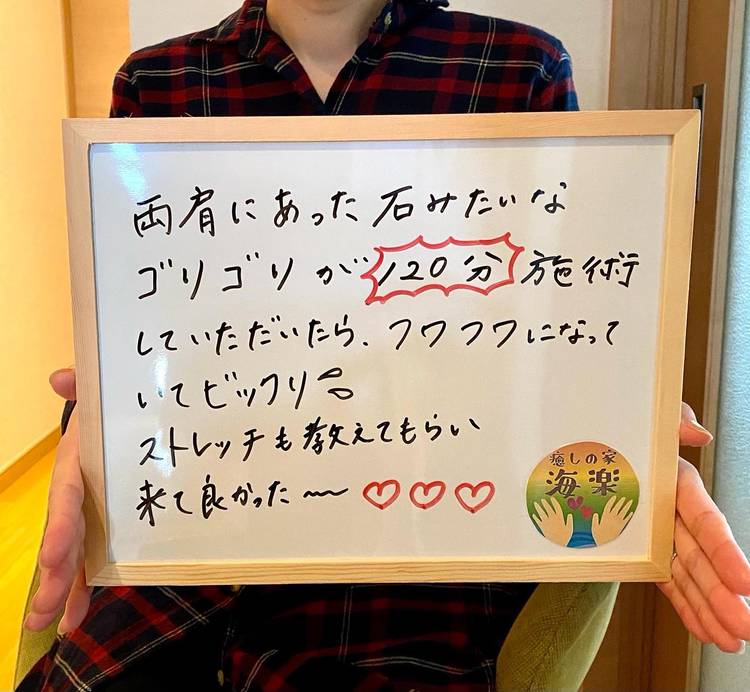 両肩にあった石みたいな
ゴリゴリが120分施術
していただいたら、フワフワになって
いてビックリ
ストレッチも教えてもらい
来て良かった〜♡♡♡
癒しの家
海楽